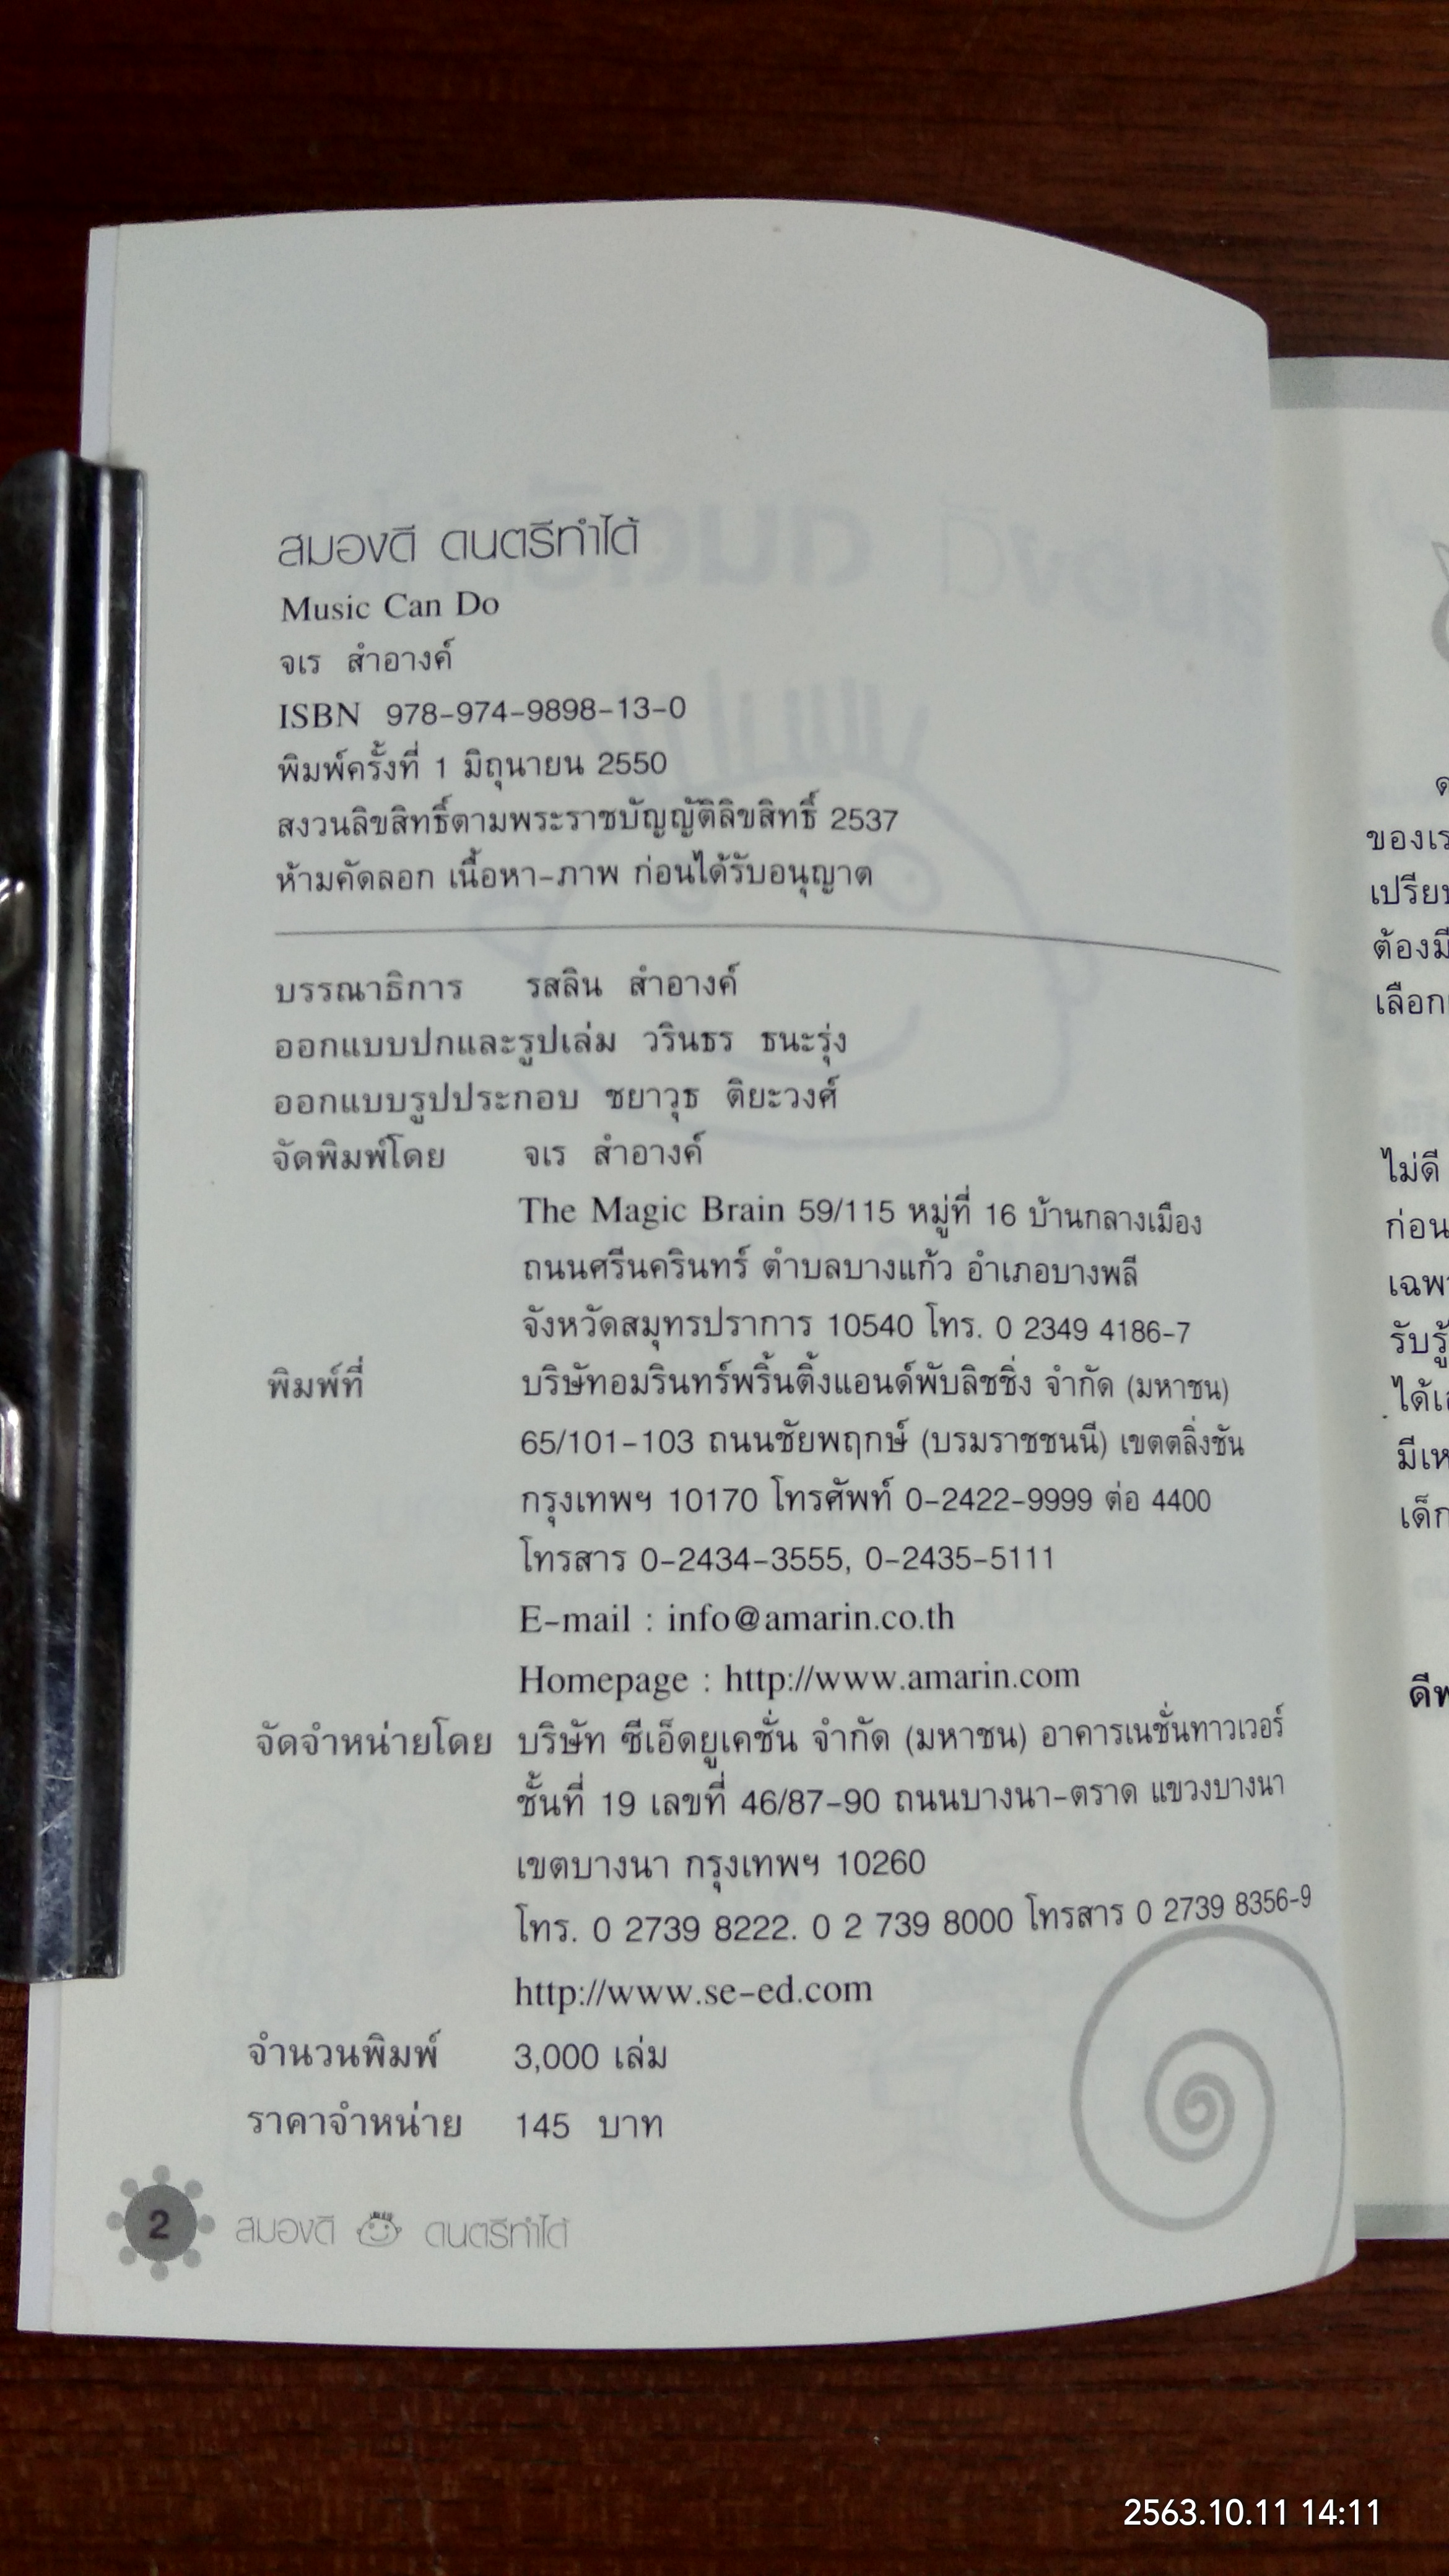 สมองดี ดนตรีทำได้
Music Can Do
จเร สำอางค์
ISBN 978-974-9898-13-0
พิมพ์ครั้งที่ 1 มิถุนายน 2550
สงวนลิขสิทธิ์ตามพระราชบัญญัติลิขสิทธิ์ 2537
ห้ามคัดลอก เนื้อหา-ภาพ ก่อนได้รับอนุญาต
บรรณาธิการ รสลิน สำอางค์
ออกแบบปกและรูปเล่ม วรินธร ธนะรุ่ง
ออกแบบรูปประกอบ ชยาวุธ ติยะวงศ์
จัดพิมพ์โดย จเร สำอางค์
The Magic Brain 59/115 หมู่ที่ 16 บ้านกลางเมือง
ถนนศรีนครินทร์ ตำบลบางแก้ว อำเภอบางพลี
จังหวัดสมุทรปราการ 10540 โทร. 0 2349 4186-7
พิมพ์ที่ บริษัทอมรินทร์พริ้นติ้งแอนด์พับลิชชิ่ง จำกัด (มหาชน)
65/101-103 ถนนชัยพฤกษ์ (บรมราชชนนี) เขตตลิ่งชัน
กรุงเทพฯ 10170 โทรศัพท์ 0-2422-9999 ต่อ 4400
โทรสาร 0-2434-3555, 0-2435-5111
E-mail : info@amarin.co.th
Homepage : http://www.amarin.com
จัดจำหน่ายโดย บริษัท ซีเอ็ดยูเคชั่น จำกัด (มหาชน) อาคารเนชั่นทาวเวอร์
ชั้นที่ 19 เลขที่ 46/87-90 ถนนบางนา-ตราด แขวงบางนา
เขตบางนา กรุงเทพฯ 10260
โทร. 0 2739 8222. 0 2 739 8000 โทรสาร 0 2739 8356-9
http://www.se-ed.com
จำนวนพิมพ์ 3,000 เล่ม
ราคาจำหน่าย 145 บาท
2 สมองดี ดนตรีทำได้
ของเร
ต้องมี
เลือก
ไม่ดี
ก่อน
รับรู้
เด็ก
2563.10.11 14:11